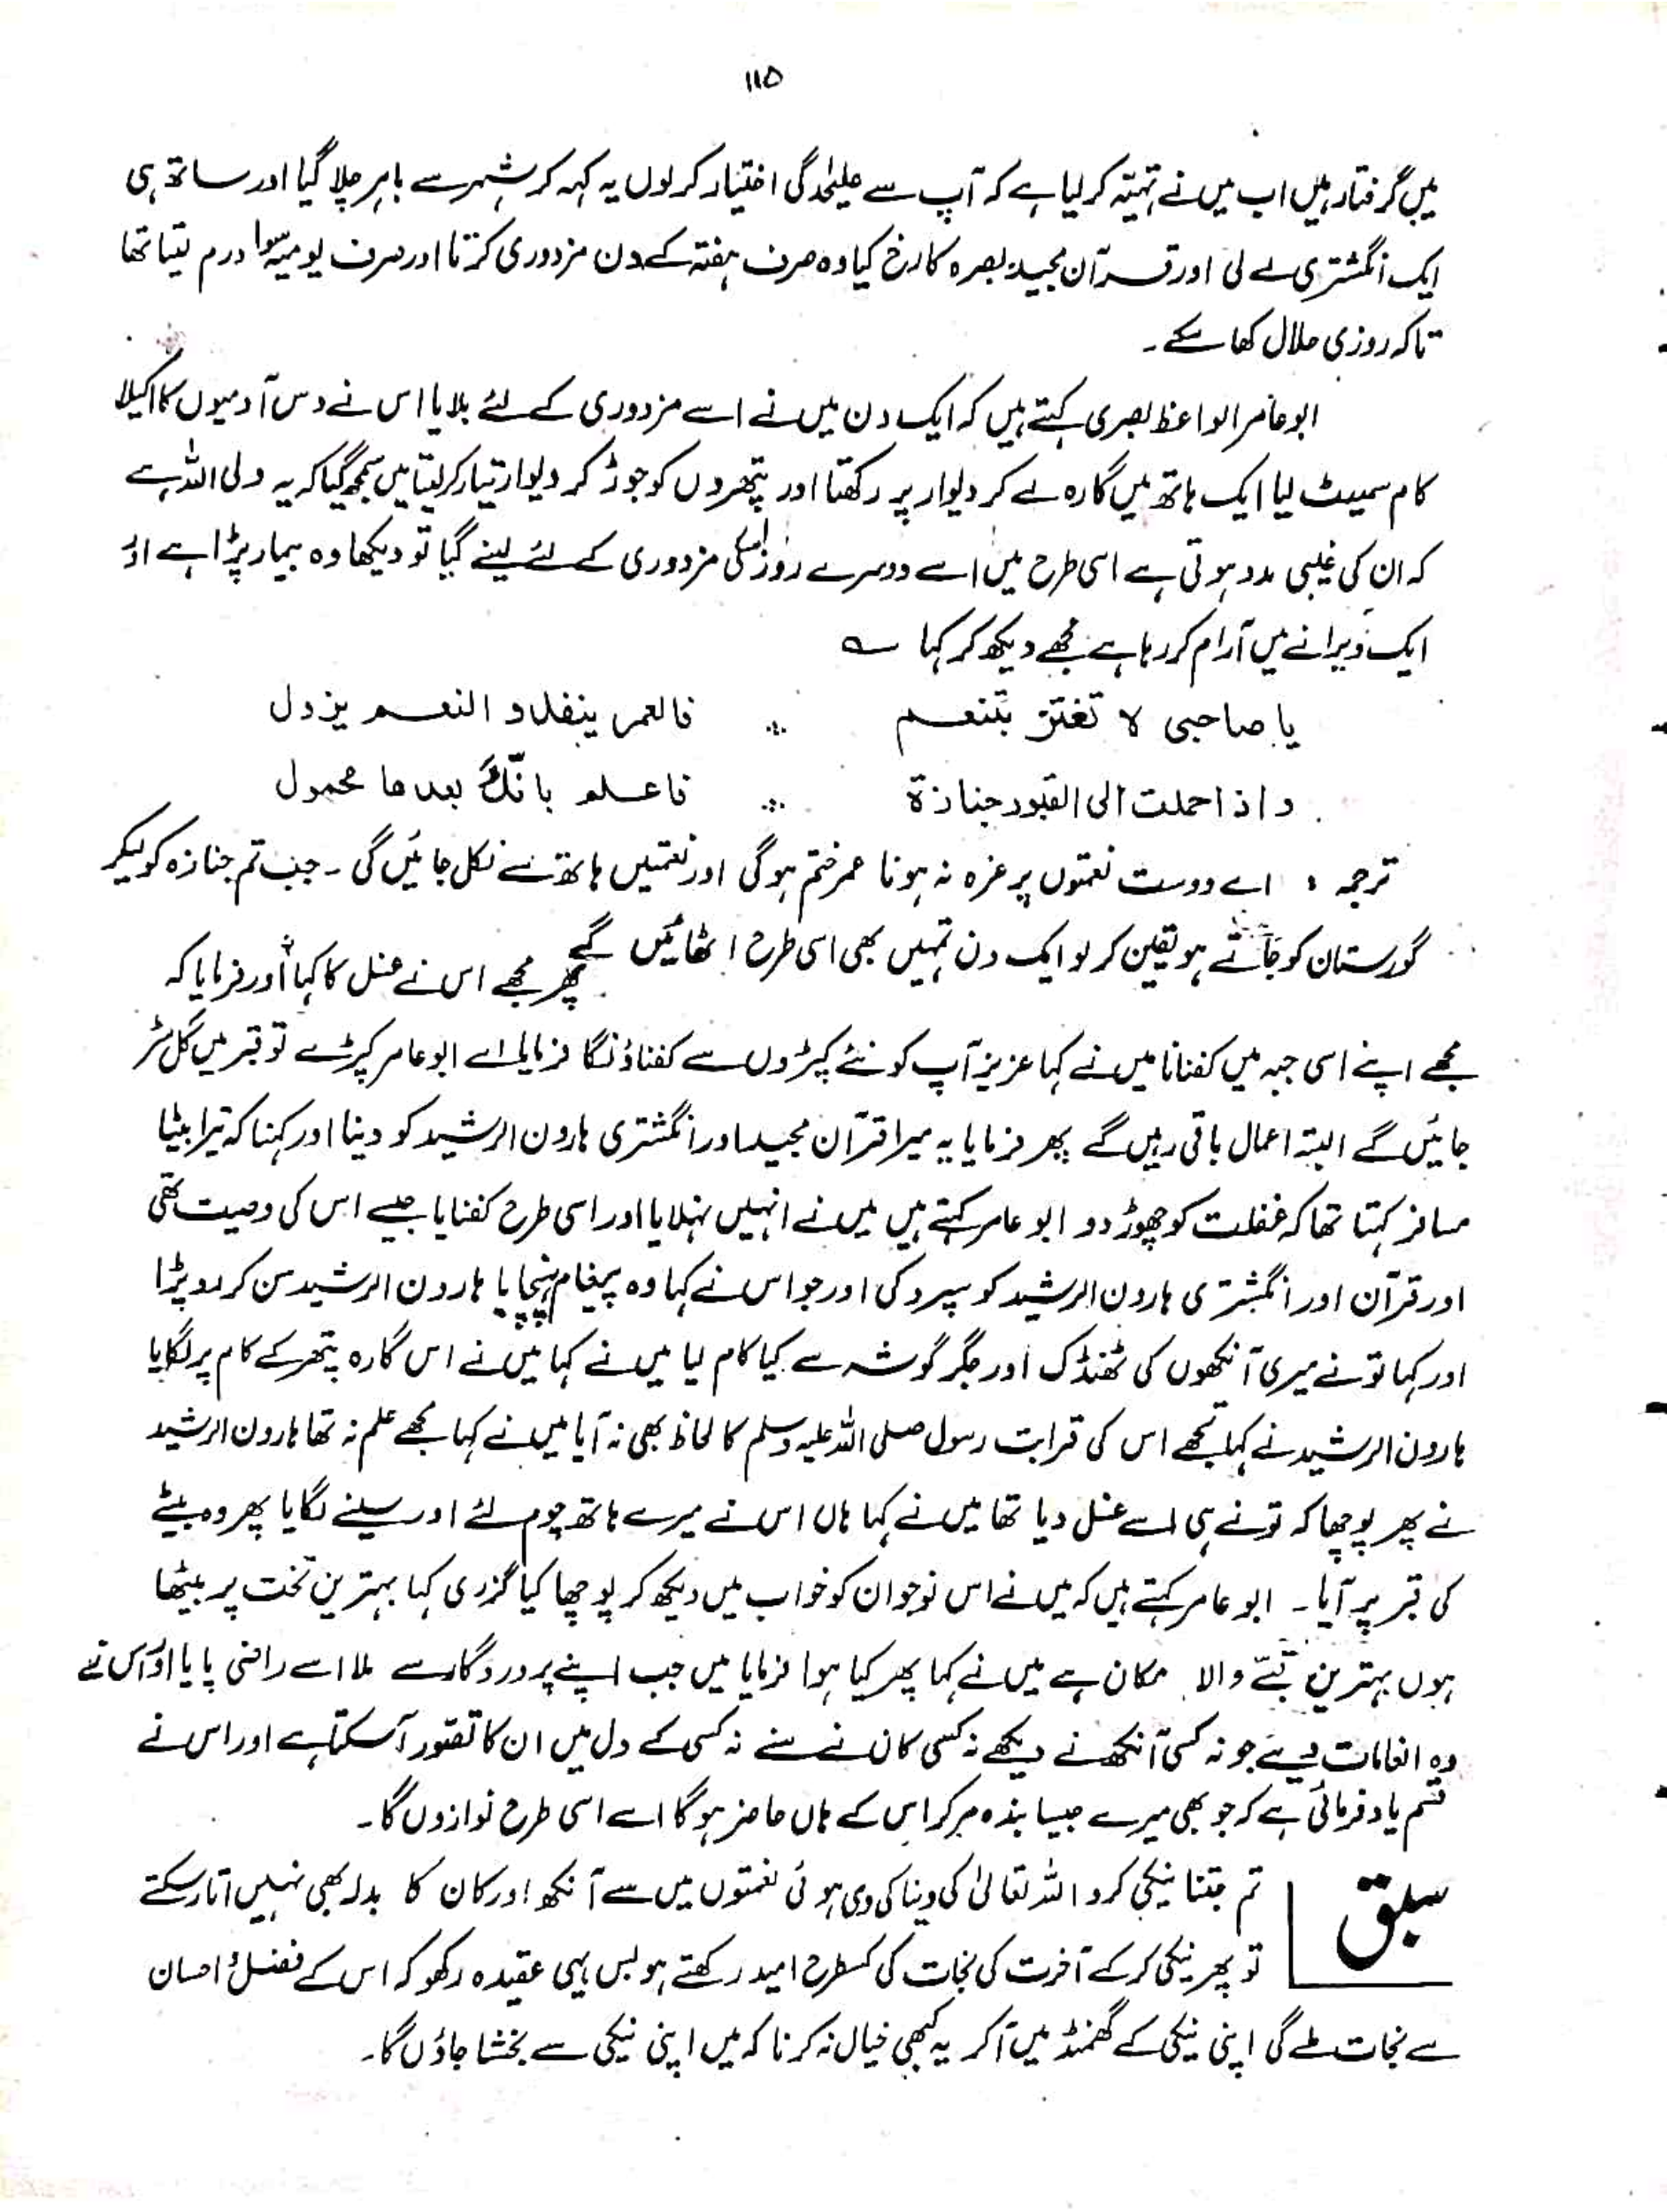 ۱۱۵
میں گرفتار ہیں اب میں نے تہیّہ کر لیا ہے کہ آپ سے علیٰحدگی اختیار کر لوں یہ کہہ کر شہر سے باہر چلا گیا اور ساتھ ہی
ایک انگشتری لے لی اور قرآن مجید بصرہ کا رخ کیا وہ صرف ہفتہ کے دن مزدوری کرتا اور صرف یومیہ سوا درم لیتا تھا
تاکہ روزی حلال کھا سکے۔
ابو عامر الواعظ بصری کہتے ہیں کہ ایک دن میں نے اسے مزدوری کے لئے بلایا اس نے دس آدمیوں کا اکیلا
کام سمیٹ لیا ایک ہاتھ میں گارہ لے کر دیوار پر رکھتا اور پتھروں کو جوڑ کر دیوار تیار کر لیتا میں سمجھ گیا کہ یہ ولی اللہ ہے
کہ ان کی غیبی مدد ہوتی ہے اسی طرح میں اسے دوسرے روز کی مزدوری کے لئے لینے گیا تو دیکھا وہ بیمار پڑا ہے اور
ایک ویرانے میں آرام کر رہا ہے مجھے دیکھ کر کہا ؎
یا صاحبی لا تغتر بتنعم ؞ فالعمر ینفد و النعم یزول
و اذا حملت الی القبور جنازۃ ؞ فاعلم بانّک بعدھا محمول
ترجمہ : اے دوست نعمتوں پر غرہ نہ ہونا عمر ختم ہو گی اور نعمتیں ہاتھ سے نکل جائیں گی ۔ جب تم جنازہ کو لیکر
گورستان کو جاتے ہو یقین کر لو ایک دن تمہیں بھی اسی طرح اٹھائیں گے پھر مجھے اس نے غسل کا کہا اور فرمایا کہ
مجھے اپنے اسی جبہ میں کفنانا میں نے کہا عزیز آپ کو نئے کپڑوں سے کفناؤنگا فرمایا اے ابو عامر کپڑے تو قبر میں گل سڑ
جائیں گے البتہ اعمال باقی رہیں گے پھر فرمایا یہ میرا قرآن مجید اور انگشتری ہارون الرشید کو دینا اور کہنا کہ تیرا بیٹا
مسافر کہتا تھا کہ غفلت کو چھوڑ دو ابو عامر کہتے ہیں میں نے انہیں نہلایا اور اسی طرح کفنایا جیسے اس کی وصیت تھی
اور قرآن اور انگشتری ہارون الرشید کو سپرد کی اور جو اس نے کہا وہ پیغام پہنچایا ہارون الرشید سن کر رو پڑا
اور کہا تو نے میری آنکھوں کی ٹھنڈک اور جگر گوشہ سے کیا کام لیا میں نے کہا میں نے اس گارہ پتھر کے کام پر لگایا
ہارون الرشید نے کہا تجھے اس کی قرابت رسول صلی اللہ علیہ وسلم کا لحاظ بھی نہ آیا میں نے کہا مجھے علم نہ تھا ہارون الرشید
نے پھر پوچھا کہ تو نے ہی اسے غسل دیا تھا میں نے کہا ہاں اس نے میرے ہاتھ چوم لئے اور سینے لگایا پھر وہ بیٹے
کی قبر پر آیا ۔ ابو عامر کہتے ہیں کہ میں نے اس نوجوان کو خواب میں دیکھ کر پوچھا کیا گزری کہا بہترین تخت پر بیٹھا
ہوں بہترین قبّے والا مکان ہے میں نے کہا پھر کیا ہوا فرمایا میں جب اپنے پروردگار سے ملا اسے راضی پایا اور اس نے
وہ انعامات دیئے جو نہ کسی آنکھ نے دیکھے نہ کسی کان نے سنے نہ کسی کے دل میں ان کا تصور آ سکتا ہے اور اس نے
قسم یاد فرمائی ہے کہ جو بھی میرے جیسا بندہ مر کر اس کے ہاں حاضر ہو گا اسے اسی طرح نوازوں گا ۔
سبق تم جتنا نیکی کرو اللہ تعالیٰ کی دینا کی دی ہوئی نعمتوں میں سے آنکھ اور کان کا بدلہ بھی نہیں اتار سکتے
تو پھر نیکی کر کے آخرت کی نجات کی کسطرح امید رکھتے ہو بس یہی عقیدہ رکھو کہ اس کے فضل و احسان
سے نجات ملے گی اپنی نیکی کے گھمنڈ میں آ کر یہ کبھی خیال نہ کرنا کہ میں اپنی نیکی سے بخشا جاؤں گا ۔